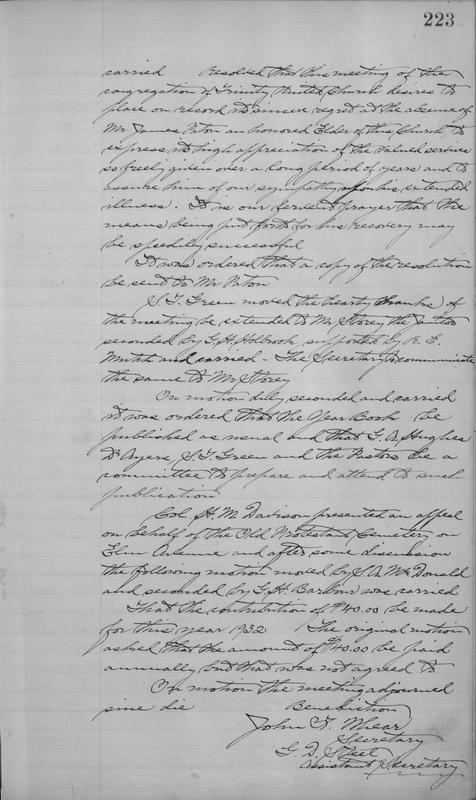 223
carried Resolved that this meeting of the
congregation of Trinity United Church desires to
place on record its sincere regret at the absence of
Mr James Paton an honored Elder of this Church, to
express its high appreciation of the valued services
so freely given over a long period of years and to
assure him of our sympathy upon his extended
illness. It is our fervent prayer that the
means being put forth for his recovery may
be speedily successful
It was ordered that a copy of the resolution
be sent to Mr Paton
S. G. Green moved the hearty thanks of
the meeting be extended to Mr Storey the Janitor
seconded by G. H. Holbrook supported by R. E.
and carried - The Secretary to communicate
the same to Mr Storey
On motion duly seconded and carried
it was ordered that the Year Book be
published as usual and that G. A. Hughes
Dr Ayers, S. G. Green and the Pastors be a
committee to prepare and attend to such
publication
Col. H. M. Davison presented an appeal
on behalf of the Old Protestant Cemetery on
Elm Avenue and after some discussion
the following motion moved by S. A. McDonald
and seconded by G. H. Barbour was carried
That the contribution of $40.00 be made
for this year 1932 The original motion
asked that the amount of $40.00 be paid
annually but that was not agreed to
On motion the meeting adjourned
sine die Benediction
John T. Whear
Secretary
G. D. Steel
Assistant Secretary